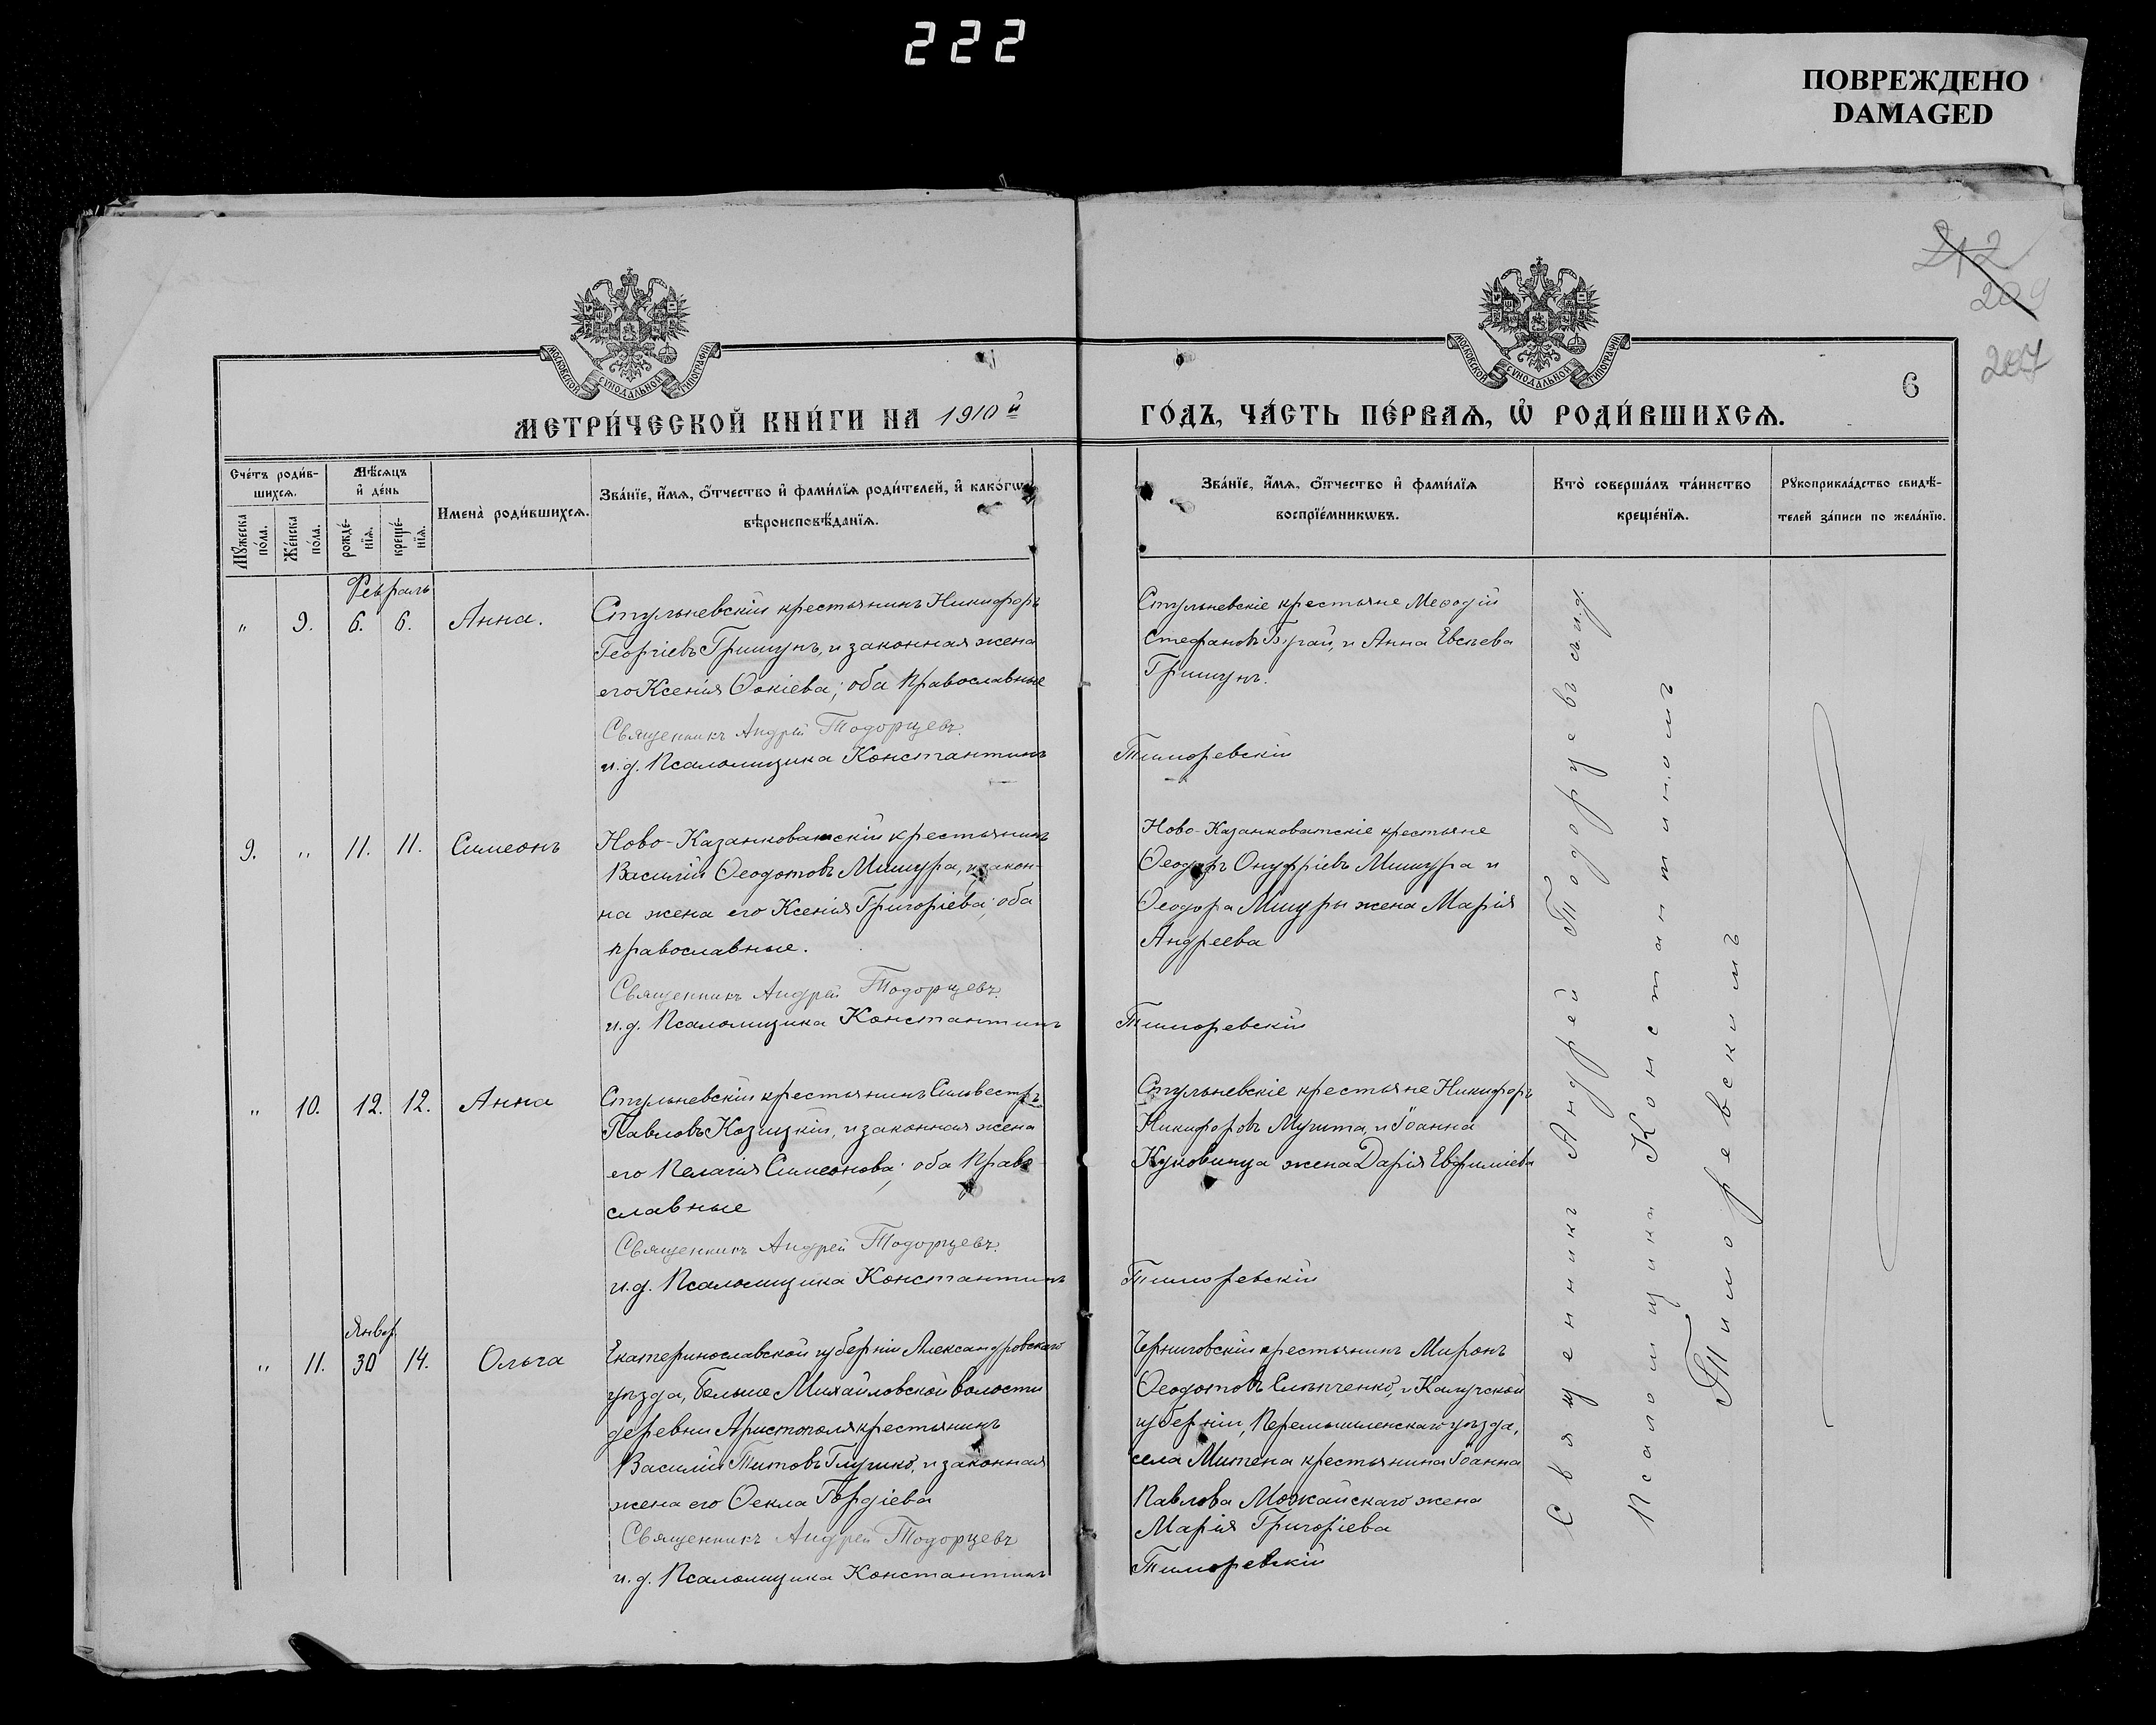 222
ПОВРЕЖДЕНО
DAMAGED
212
209
207
6
МОСКОВСКОЙ СѴНОДАЛЬНОЙ ТИПОГРАФІИ
МОСКОВСКОЙ СѴНОДАЛЬНОЙ ТИПОГРАФІИ
МЕТРИ́ЧЕСКОЙ КНИ́ГИ НА 1910й
ГО́ДЪ, ЧА́СТЬ ПЕ́РВАѦ, Ѽ РОДИ́ВШИХСѦ.
Сче́тъ роди́в-
шихсѧ.
Мѣ́сѧцъ
и҆ де́нь
Имена̀ роди́вшихсѧ.
Зва́нїе, и҆́мѧ, ѻ҆́тчество и҆ фами́лїѧ роди́телей, и҆ како́гѡ
вѣроисповѣ́данїѧ.
Мꙋ́жеска
по́ла.
Же́нска
по́ла.
рожде́-
нїѧ.
креще́-
нїѧ.
Зва́нїе, и҆́мѧ, ѻ҆́тчество и҆ фами́лїѧ
воспрїе́мникѡвъ.
Кто̀ соверша́лъ та́инство
креще́нїѧ.
Рꙋкоприкла́дство свидѣ́-
телей за́писи по жела́нїю.
Февраль
" 9. 6. 6. Анна.
Стульневскій крестьянинъ Никифоръ
Георгіевъ Гришунъ, и законная жена
его Ксенія Ѳокіева; оба православные
Священникъ Андрей Тодорцевъ.
и.д. Псаломщика Константинъ
Стульневскіе крестьяне Меѳодій
Стефановъ Бугай, и Анна Евсѣева
Гришунъ.
Тиморевскій
9. " 11. 11. Симеонъ
Ново-Казанковатскій крестьянинъ
Василій Ѳеодотовъ Мишура, и закон-
на жена его Ксенія Григоріева; оба
православные.
Священникъ Андрей Тодорцевъ.
и.д. Псаломщика Константинъ
Ново-Казанковатскіе крестьяне
Ѳеодоръ Онуфріевъ Мишура и
Ѳеодора Мишуры жена Марія
Андреева
Тиморевскій
" 10. 12. 12. Анна
Стульневскій крестьянинъ Сильвестръ
Павловъ Козицкій, и законная жена
его Пелагія Симеонова; оба право
славные
Священникъ Андрей Тодорцевъ.
и.д. Псаломщика Константинъ
Стульневскіе крестьяне Никифоръ
Никифоровъ Мучита, и Іоанна
Куковица жена Дарія Евфиміева
Тиморевскій
Январ
" 11. 30 14. Ольга
Екатеринославской губерніи Александровскаго
уѣзда, Больше Михайловской волости
деревни Аристополя крестьянинъ
Василій Титовъ Глушко, и законная
жена его Ѳекла Гордіева
Священникъ Андрей Тодорцевъ
и.д. Псаломщика Константинъ
Черниговскій крестьянинъ Миронъ
Ѳеодотовъ Слѣпченко, и Калужской
губерніи, Перемышленскаго уѣзда,
села Митена крестьянина Іоанна
Павлова Можайскаго жена
Марія Григоріева
Тиморевскій
Священникъ Андрей Тодорцевъ съ и.д.
Псаломщика Константиномъ
Тиморевскимъ